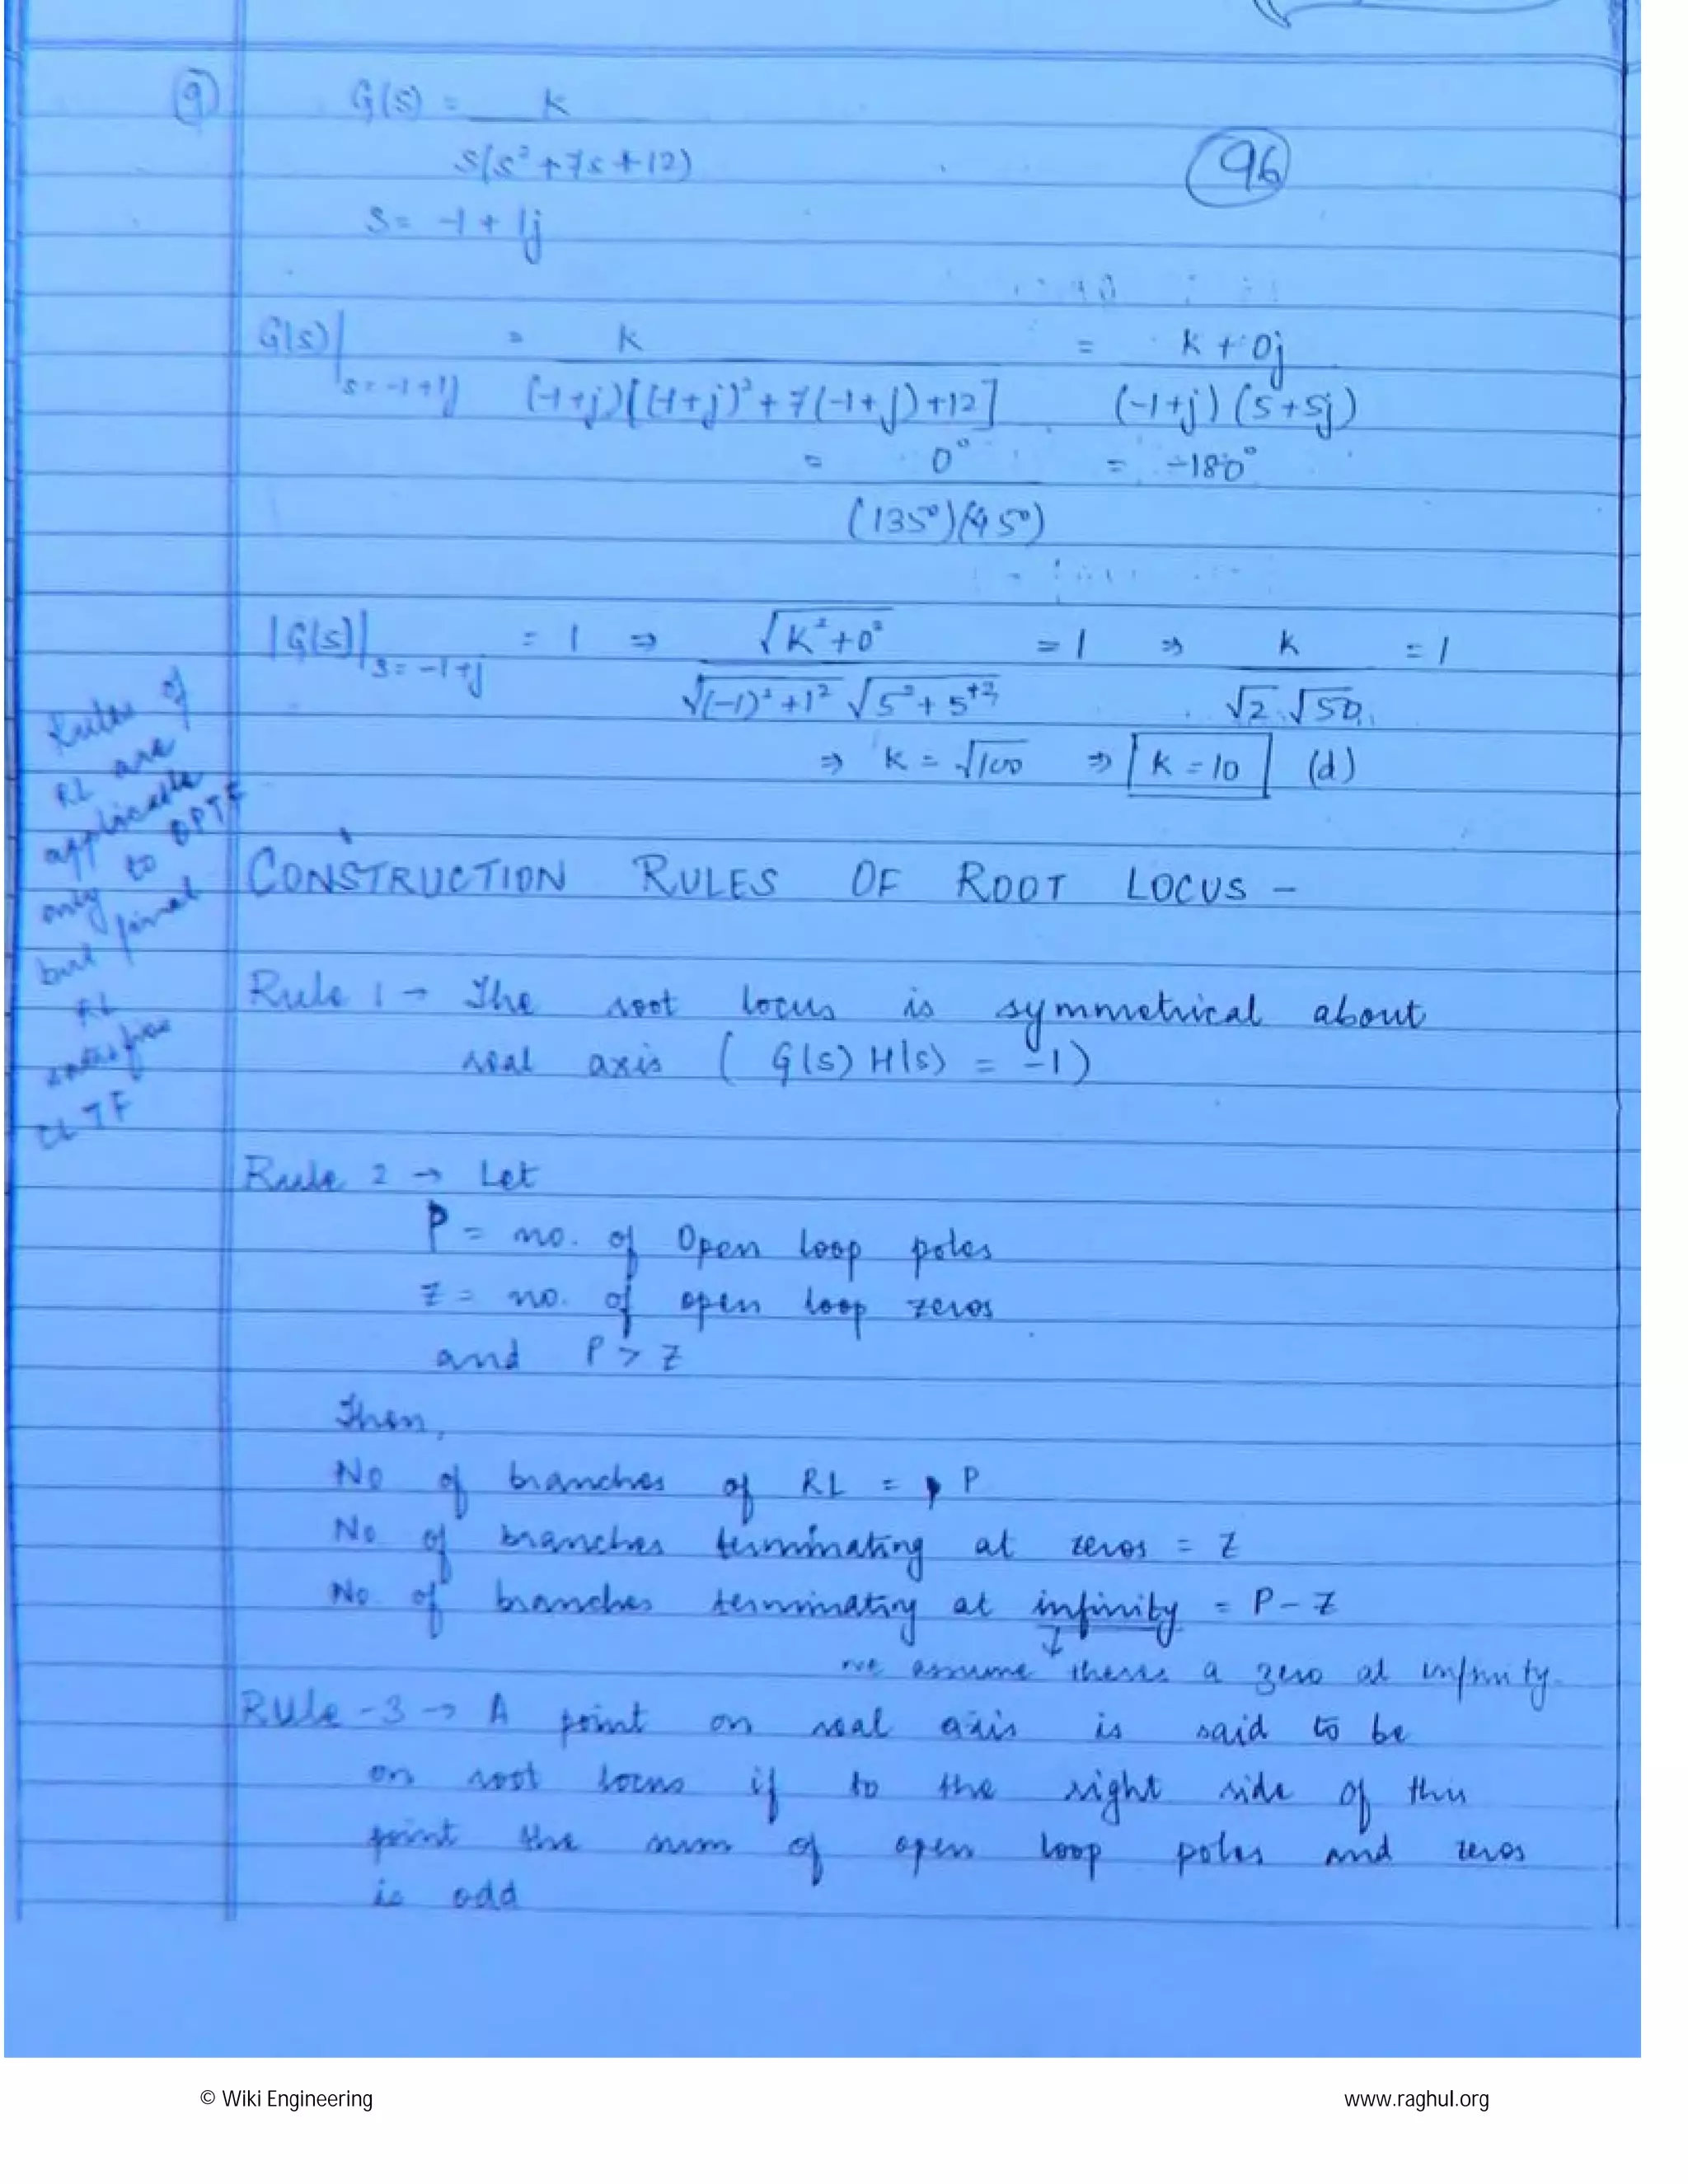 (9) G(s) = K / s(s² + 7s + 12)
(96)
s = -1 + 1j
G(s)|s = -1+1j = K / (-1+j)[(-1+j)² + 7(-1+j) + 12] = K + 0j / (-1+j) (5+5j)
= 0° / (135°)(45°) = -180°
|G(s)|s = -1+j = 1 ⇒ √K²+0² / √(-1)²+1² √5²+5² = 1 ⇒ K / √2 √50 = 1
⇒ K = √100 ⇒ K = 10 (d)
Rules of
RL are
applicable
only to OPTF
but final
RL
CLTF
CONSTRUCTION RULES OF ROOT LOCUS -
Rule 1 → The root locus is symmetrical about
real axis ( G(s) H(s) = -1)
Rule 2 → Let
P = no. of Open loop poles
Z = no. of open loop zeros
and P > Z
Then,
No of branches of RL = P
No of branches terminating at zeros = Z
No of branches terminating at infinity = P - Z
↓
we assume there's a zero at infinity.
Rule - 3 → A point on real axis is said to be
on root locus if to the right side of this
point the sum of open loop poles and zeros
is odd
© Wiki Engineering
www.raghul.org